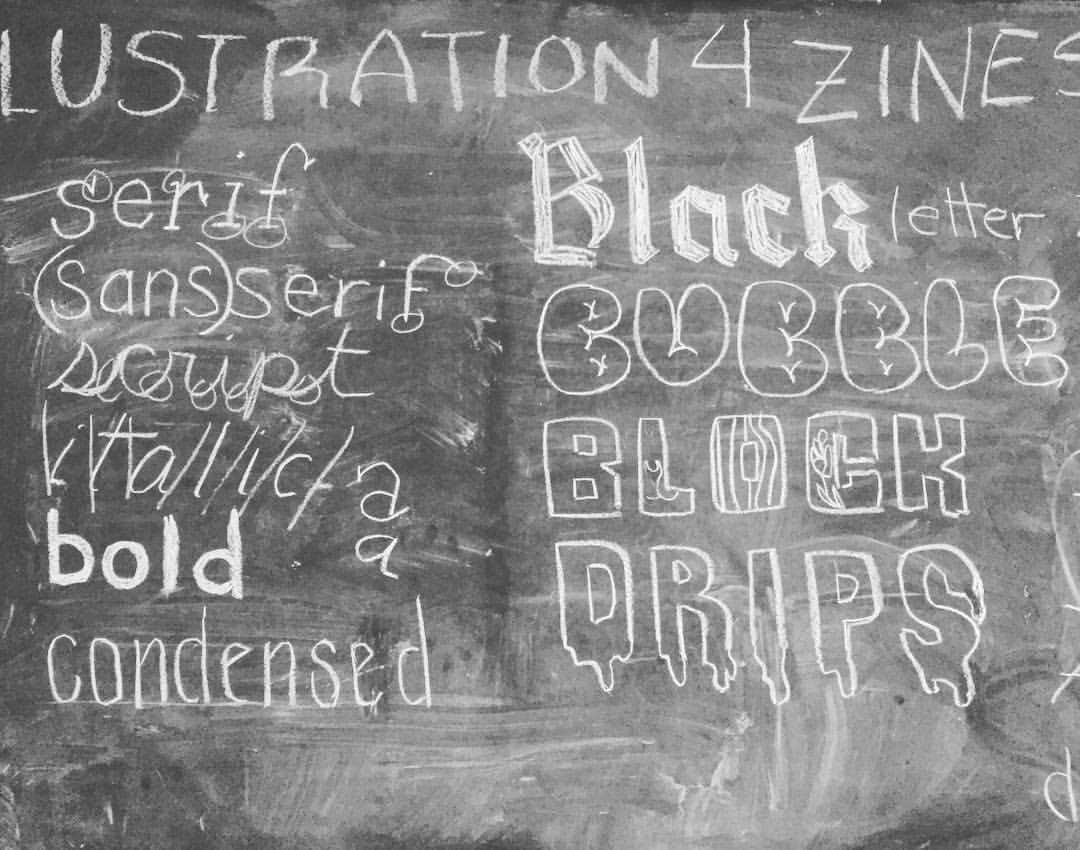 LUSTRATION 4 ZINES
serif
(sans)serif
script
i/t/a/l/i/c/ a
a
bold
condensed
Black letter
BUBBLE
BLOCK
DRIPS
d